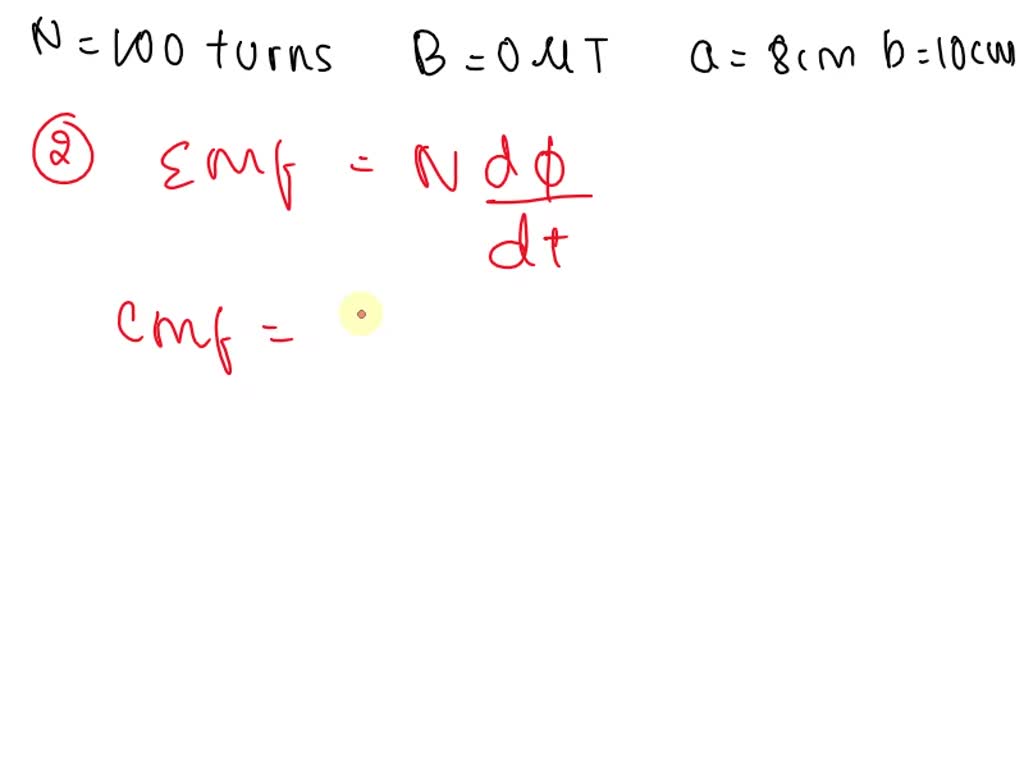 N = 100 turns B = 0 μT a = 8cm b = 10cm
② Emf = N dϕ/dt
emf =